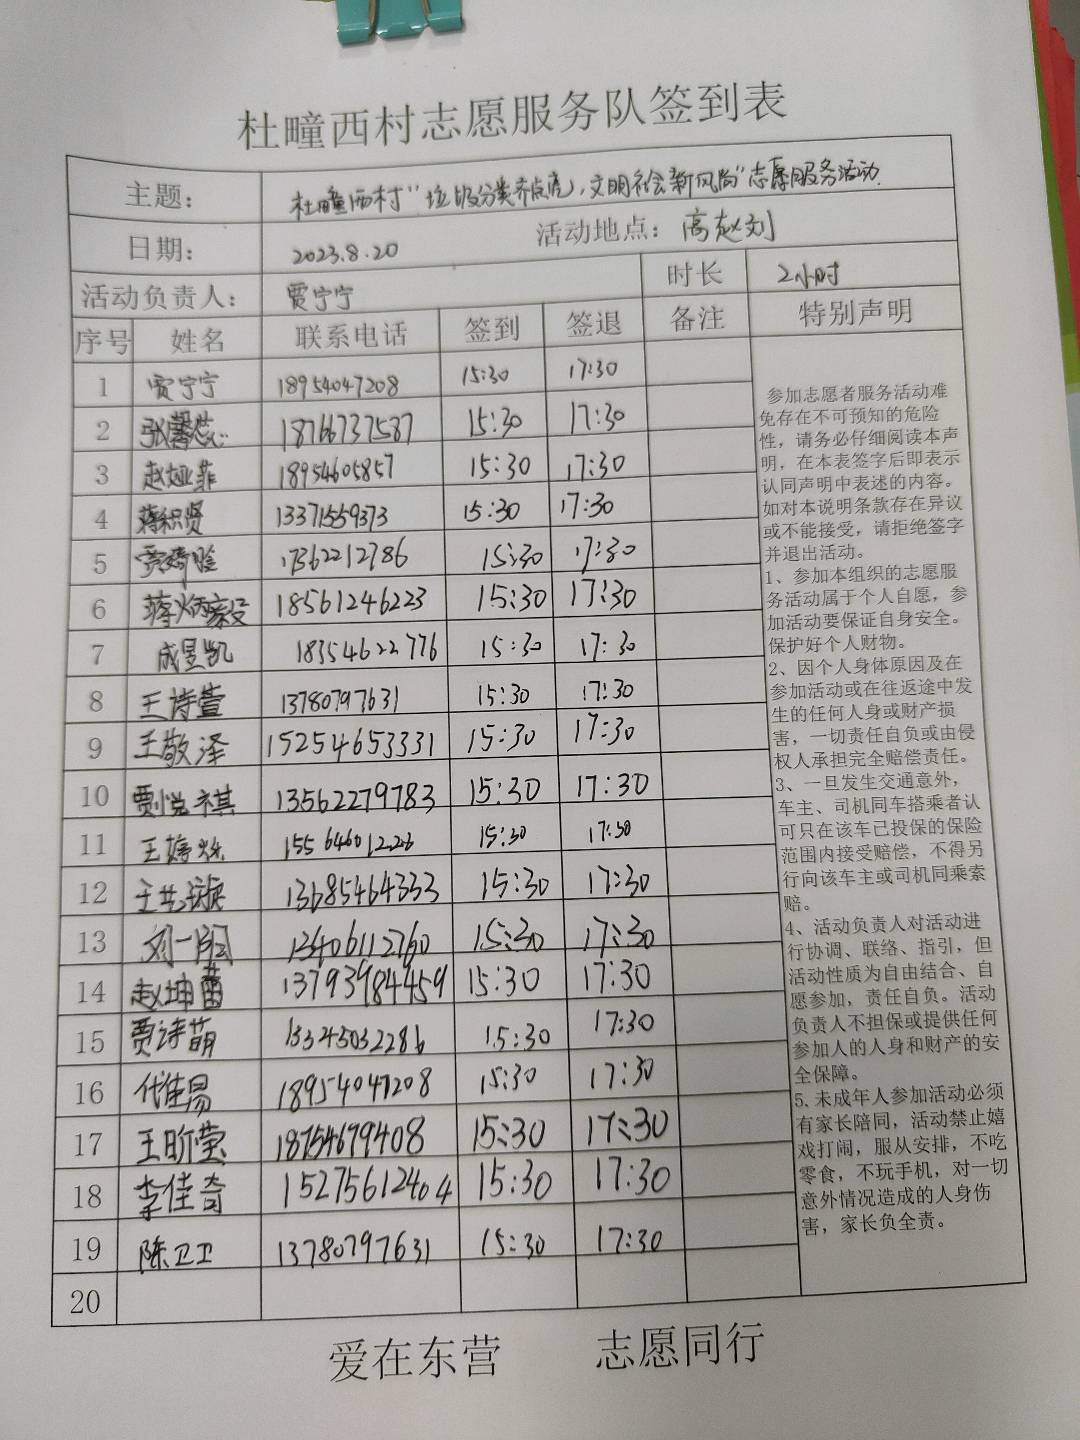 杜疃西村志愿服务队签到表
主题： 杜疃西村“垃圾分类齐点亮，文明社会新风尚”志愿服务活动
日期： 2023.8.20 活动地点：高赵刘
活动负责人： 贾宁宁 时长 2小时
序号 姓名 联系电话 签到 签退 备注 特别声明
1 贾宁宁 18954047208 15:30 17:30
2 张馨蕊 18766737587 15:30 17:30
3 赵娅菲 18954605857 15:30 17:30
4 13371559373 15:30 17:30
5 17362212786 15:30 17:30
6 18561246223 15:30 17:30
7 成昱凯 18354622776 15:30 17:30
8 王诗萱 13780797631 15:30 17:30
9 王敬泽 15254653331 15:30 17:30
10 贾悦祺 13562279783 15:30 17:30
11 15:30 17:30
12 13685464333 15:30 17:30
13 13406112760 15:30 17:30
14 赵坤蕾 13793984459 15:30 17:30
15 贾诗萌 13345032286 15:30 17:30
16 代佳易 18954047208 15:30 17:30
17 王昕莹 18754679408 15:30 17:30
18 李佳奇 15275612404 15:30 17:30
19 陈卫卫 13780797631 15:30 17:30
20
参加志愿者服务活动难
免存在不可预知的危险
性，请务必仔细阅读本声
明，在本表签字后即表示
认同声明中表述的内容。
如对本说明条款存在异议
或不能接受，请拒绝签字
并退出活动。
1、参加本组织的志愿服
务活动属于个人自愿，参
加活动要保证自身安全。
保护好个人财物。
2、因个人身体原因及在
参加活动或在往返途中发
生的任何人身或财产损
害，一切责任自负或由侵
权人承担完全赔偿责任。
3、一旦发生交通意外，
车主、司机同车搭乘者认
可只在该车已投保的保险
范围内接受赔偿，不得另
行向该车主或司机同乘索
赔。
4、活动负责人对活动进
行协调、联络、指引，但
活动性质为自由结合、自
愿参加，责任自负。活动
负责人不担保或提供任何
参加人的人身和财产的安
全保障。
5.未成年人参加活动必须
有家长陪同，活动禁止嬉
戏打闹，服从安排，不吃
零食，不玩手机，对一切
意外情况造成的人身伤
害，家长负全责。
爱在东营 志愿同行